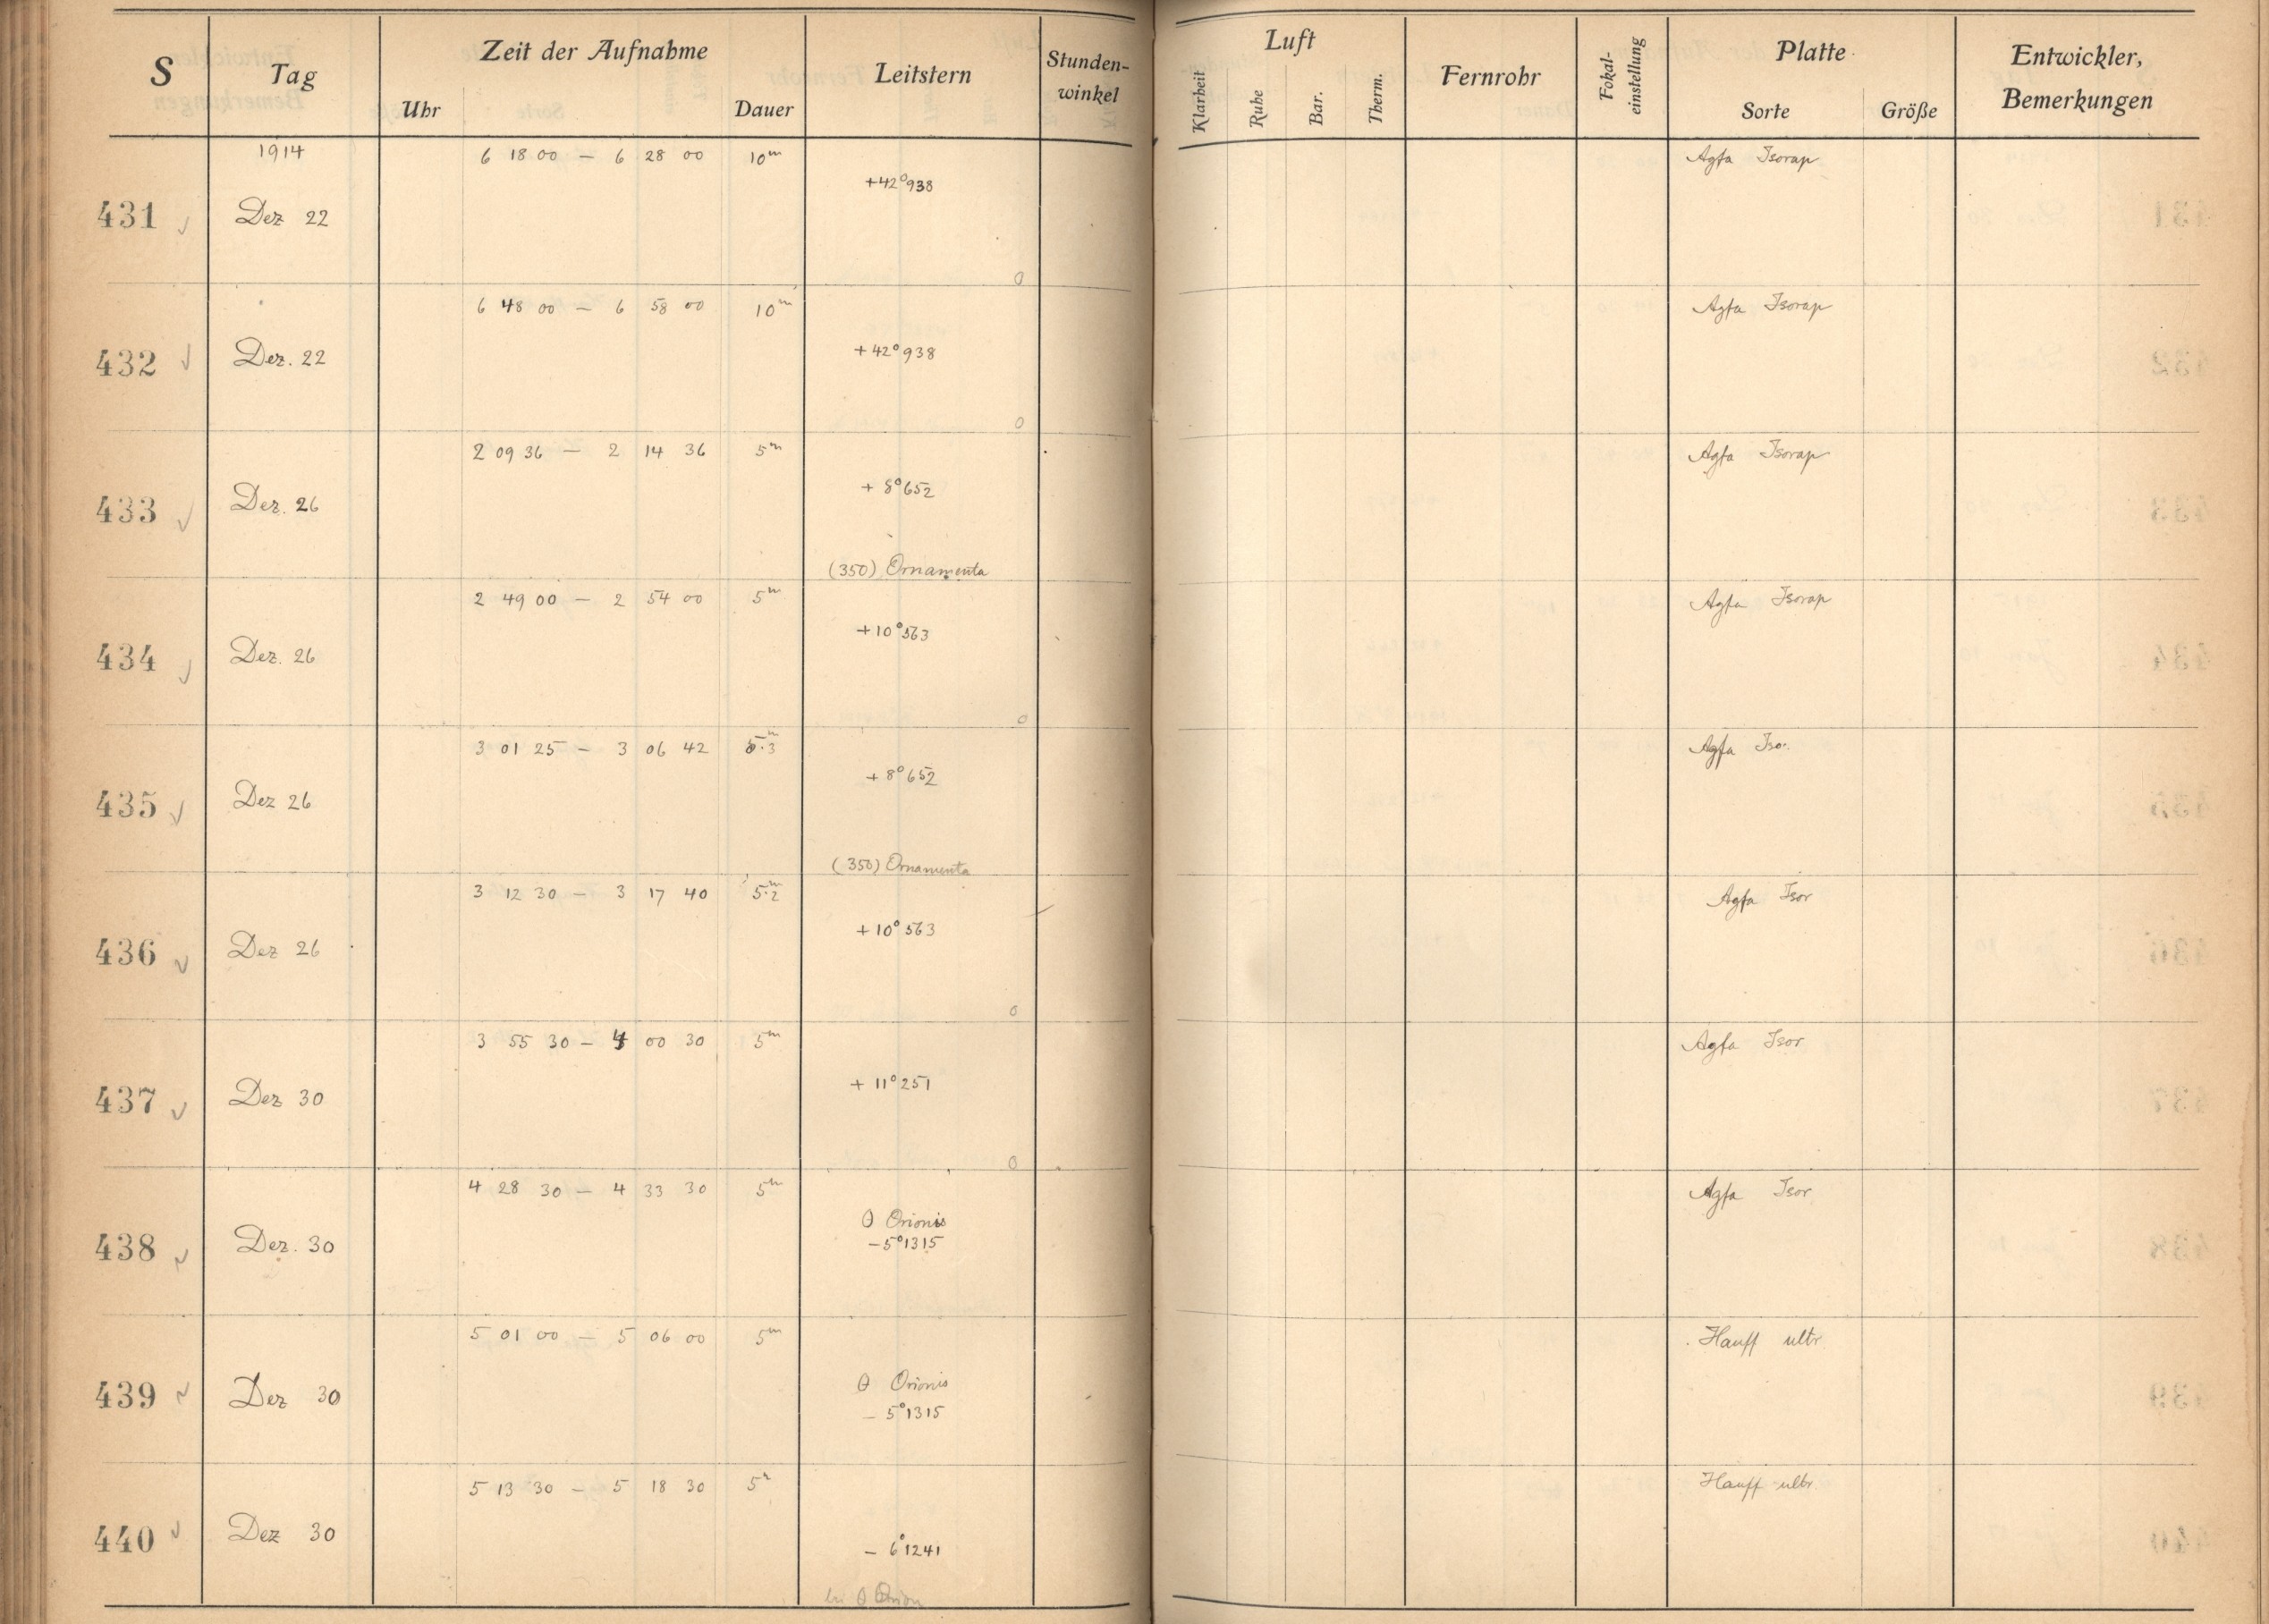 S Tag Zeit der Aufnahme Leitstern Stunden-winkel Luft Fernrohr Fokal-einstellung Platte Entwickler, Bemerkungen
Uhr Dauer Klarheit Ruhe Bar. Therm. Sorte Größe
1914 6 18 00 — 6 28 00 10m Agfa Isorap
+42°938
431 Dez 22
0
6 48 00 — 6 58 00 10m Agfa Isorap
432 Dez. 22 +42°938
0
2 09 36 — 2 14 36 5m Agfa Isorap
+ 8°652
433 Dez. 26
(350) Ornamenta
2 49 00 — 2 54 00 5m Agfa Isorap
+10°563
434 Dez. 26
0
3 01 25 — 3 06 42 5m.3 Agfa Iso.
+8°652
435 Dez 26
(350) Ornamenta
3 12 30 — 3 17 40 5m.2 Agfa Isor
+10°563
436 Dez 26
0
3 55 30 — 4 00 30 5m Agfa Isor
+ 11°251
437 Dez 30
0
4 28 30 — 4 33 30 5m Agfa Isor
θ Orionis
438 Dez. 30 −5°1315
5 01 00 — 5 06 00 5m Hauff ultr
θ Orionis
439 Dez 30 − 5°1315
5 13 30 — 5 18 30 5m Hauff ultr.
440 Dez 30 − 6°1241
θ Orion